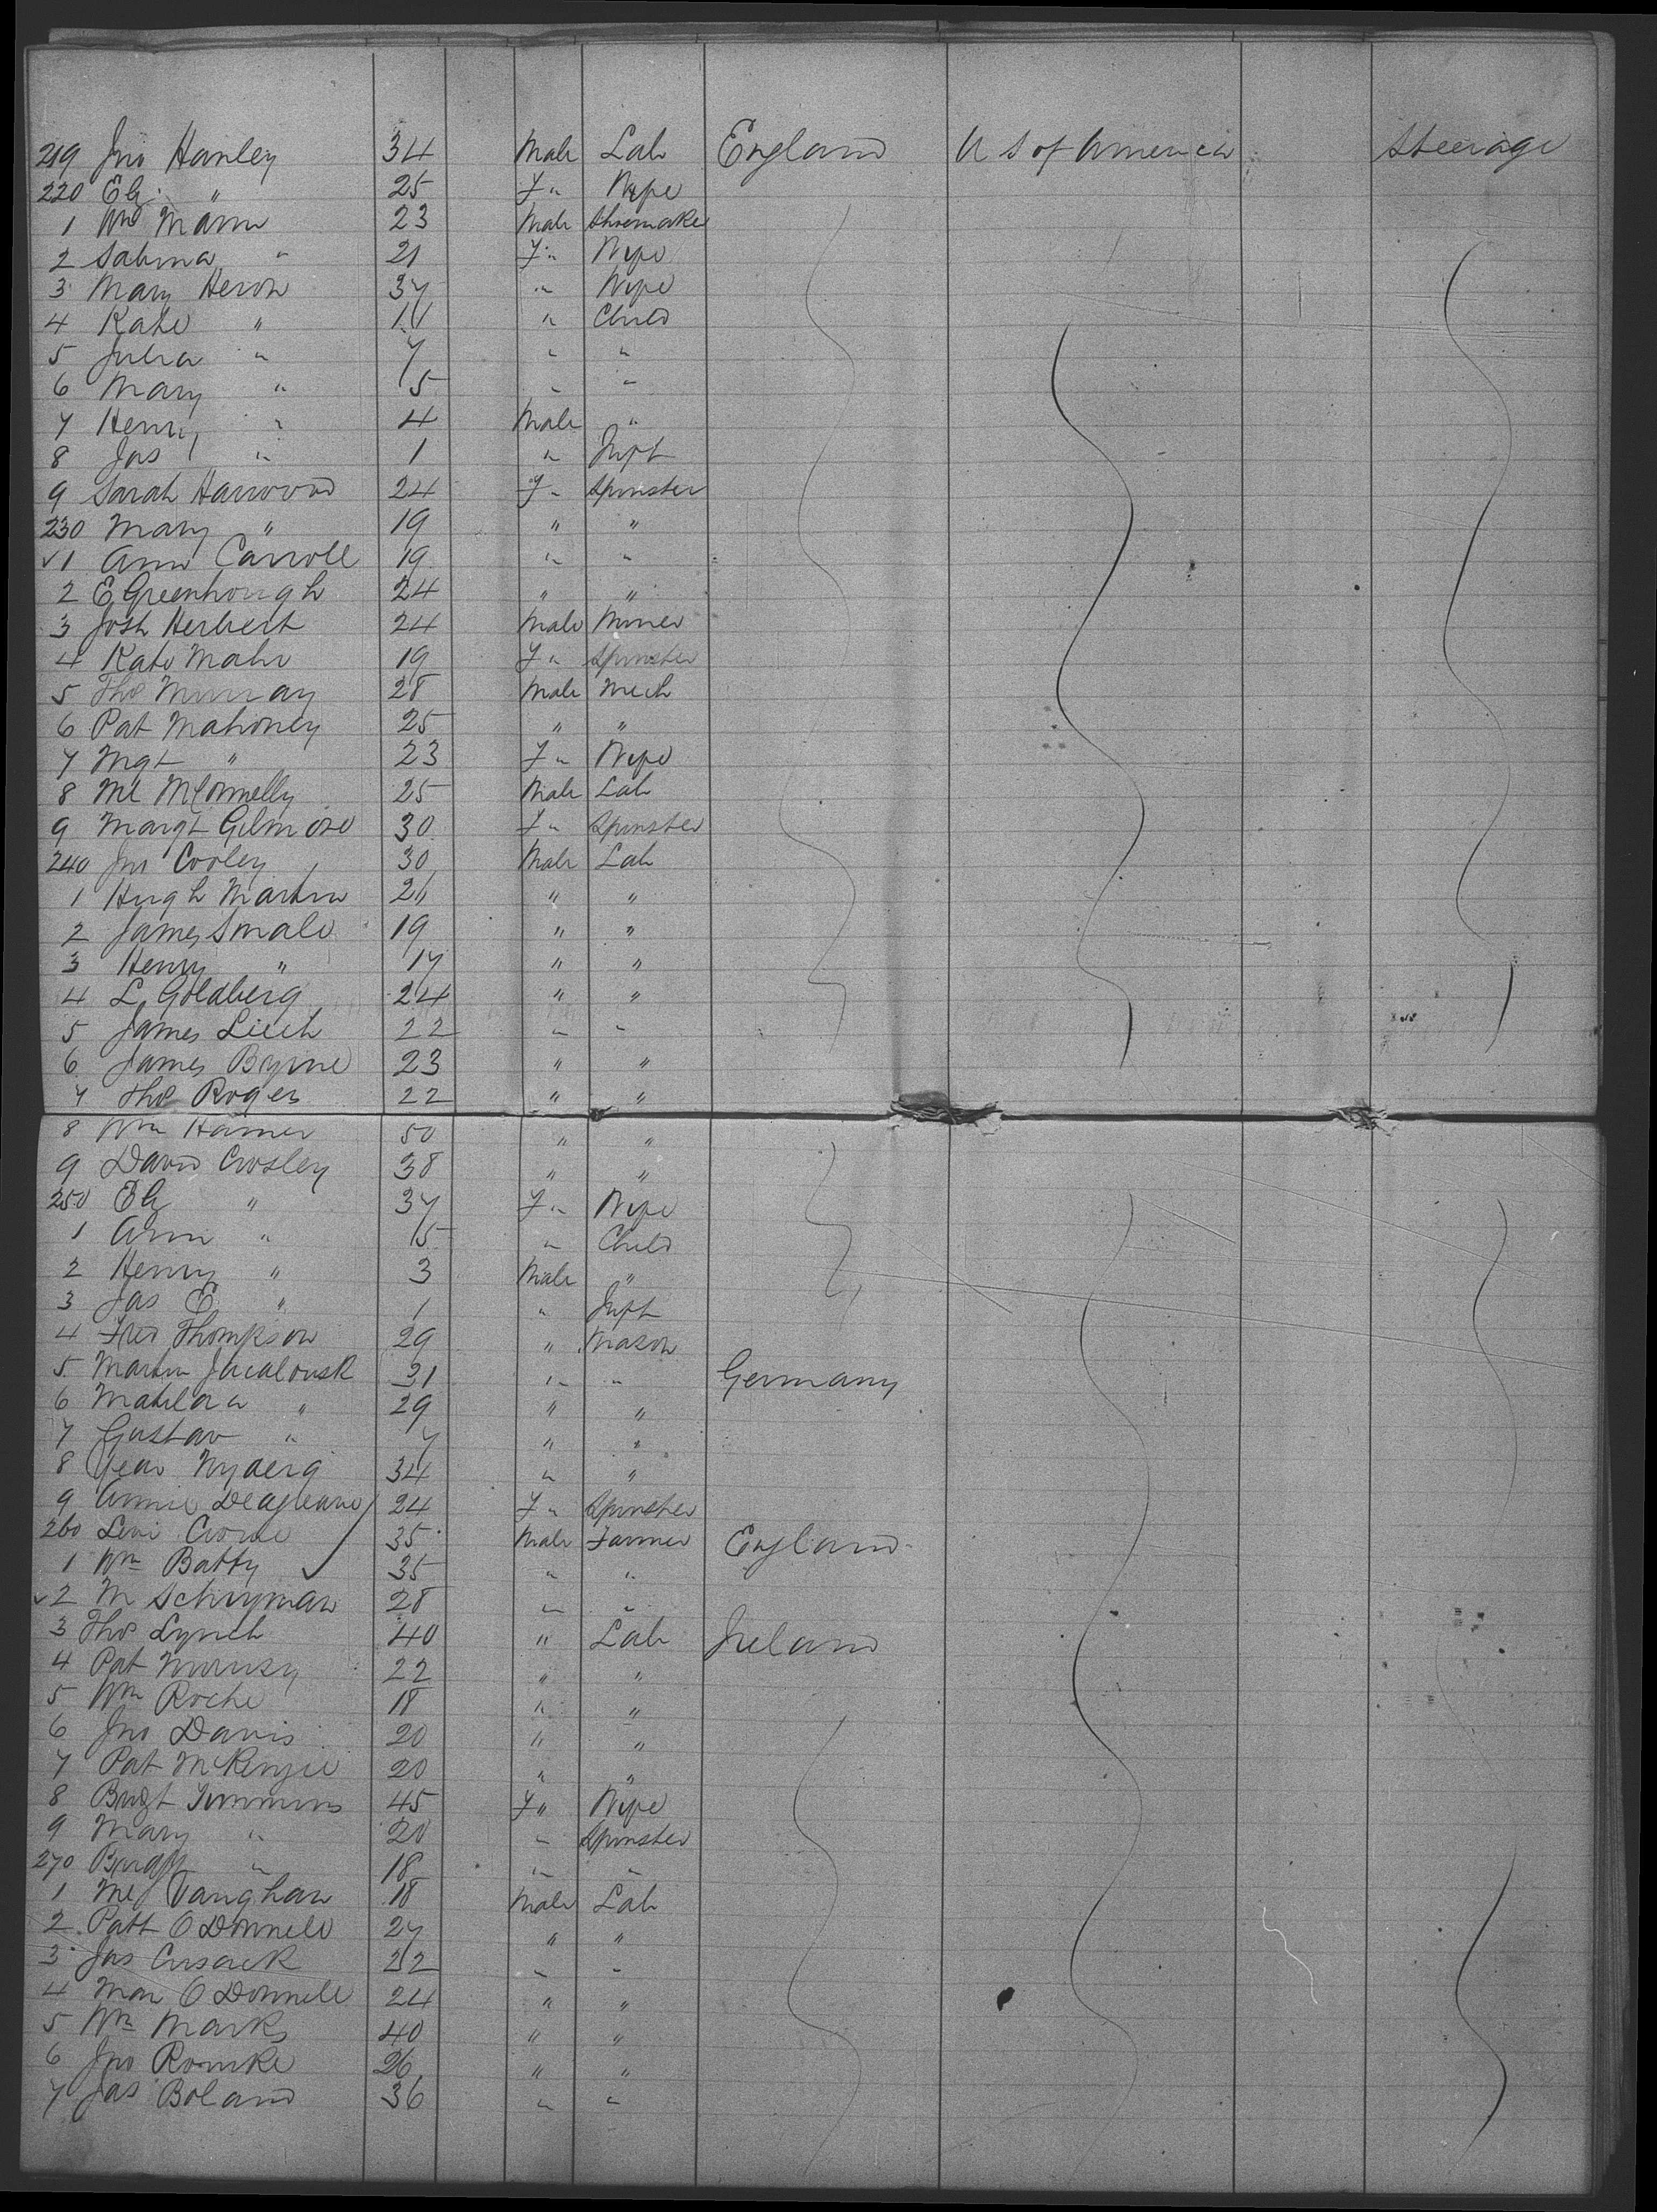 219 Jno Hanley 34 Male Lab England U S of America Steerage
220 Eliz " 25 F " Wife
1 Wm Mann 23 Male Shoemaker
2 Sabina " 21 F " Wife
3 Mary Heron 37 " Wife
4 Kate " 11 " Child
5 Julia " 7 " "
6 Mary " 5 " "
7 Henry " 4 Male "
8 Jas " 1 " Inft
9 Sarah Harwood 24 F " Spinster
230 Mary " 19 " "
1 Ann Carroll 19 " "
2 E Greenhough 24 " "
3 Josh Herbert 24 Male Miner
4 Kate Maher 19 F " Spinster
5 Thos Murray 28 Male Mech
6 Pat Mahoney 25 " "
7 Mgt " 23 F " Wife
8 Ml McConnelly 25 Male Lab
9 Margt Gilmore 30 F " Spinster
240 Jno Cooley 30 Male Lab
1 Hugh Martin 21 " "
2 James Smale 19 " "
3 Henry " 17 " "
4 L Goldberg 24 " "
5 James Liech 22 " "
6 James Byrne 23 " "
7 Thos Roger 22 " "
8 Wm Hamer 50 " "
9 David Crosley 38 " "
250 Eliz " 37 F " Wife
1 Ann " 5 " Child
2 Henry " 3 Male "
3 Jas E " 1 " Inft
4 Fred Thompson 29 " Mason
5 Martin 31 " " Germany
6 " 29 " "
7 Gustav " 7 " "
8 34 " "
9 Annie 24 F " Spinster
260 Levi Crowe 35 Male Farmer England
1 Wm Batty 35 " "
2 M Schryman 28 " "
3 Thos Lynch 40 " Lab Ireland
4 Pat 22 " "
5 Wm Roche 18 " "
6 Jno Davis 20 " "
7 Pat McKenzie 20 " "
8 Bridgt Timmins 45 F " Wife
9 Mary " 20 " Spinster
270 Bridgt " 18 " "
1 Ml Vaughan 18 Male Lab
2 Patt O Donnell 27 " "
3 Jas Cusack 22 " "
4 O Donnell 24 " "
5 Wm Marks 40 " "
6 Jno Rourke 26 " "
7 Jas Boland 36 " "